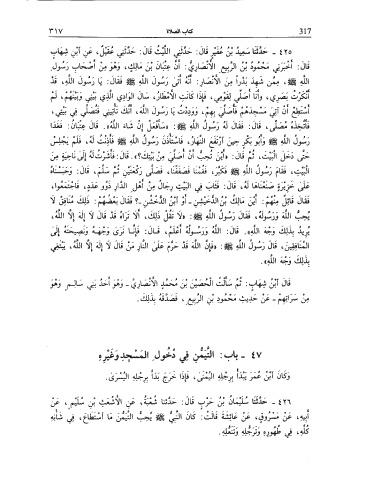 317 كتاب الصلاة ٣١٧
٤٢٥ - حَدَّثَنَا سَعِيدُ بْنُ عُفَيْرٍ قَالَ: حَدَّثَنِي اللَّيْثُ قَالَ: حَدَّثَنِي عُقَيْلٌ، عَنِ ابْنِ شِهَابٍ
قَالَ: أَخْبَرَنِي مَحْمُودُ بْنُ الرَّبِيعِ الْأَنْصَارِيُّ: أَنَّ عِتْبَانَ بْنَ مَالِكٍ، وَهُوَ مِنْ أَصْحَابِ رَسُولِ
اللَّهِ ﷺ، مِمَّنْ شَهِدَ بَدْرًا مِنَ الْأَنْصَارِ: أَنَّهُ أَتَى رَسُولَ اللَّهِ ﷺ فَقَالَ: يَا رَسُولَ اللَّهِ، قَدْ
أَنْكَرْتُ بَصَرِي، وَأَنَا أُصَلِّي لِقَوْمِي، فَإِذَا كَانَتِ الْأَمْطَارُ، سَالَ الْوَادِي الَّذِي بَيْنِي وَبَيْنَهُمْ، لَمْ
أَسْتَطِعْ أَنْ آتِيَ مَسْجِدَهُمْ فَأُصَلِّيَ بِهِمْ، وَوَدِدْتُ يَا رَسُولَ اللَّهِ، أَنَّكَ تَأْتِينِي فَتُصَلِّيَ فِي بَيْتِي،
فَأَتَّخِذَهُ مُصَلًّى، قَالَ: فَقَالَ لَهُ رَسُولُ اللَّهِ ﷺ: «سَأَفْعَلُ إِنْ شَاءَ اللَّهُ». قَالَ عِتْبَانُ: فَغَدَا
رَسُولُ اللَّهِ ﷺ وَأَبُو بَكْرٍ حِينَ ارْتَفَعَ النَّهَارُ، فَاسْتَأْذَنَ رَسُولُ اللَّهِ ﷺ فَأَذِنْتُ لَهُ، فَلَمْ يَجْلِسْ
حَتَّى دَخَلَ الْبَيْتَ، ثُمَّ قَالَ: «أَيْنَ تُحِبُّ أَنْ أُصَلِّيَ مِنْ بَيْتِكَ؟». قَالَ: فَأَشَرْتُ لَهُ إِلَى نَاحِيَةٍ مِنَ
الْبَيْتِ، فَقَامَ رَسُولُ اللَّهِ ﷺ فَكَبَّرَ، فَقُمْنَا فَصَفَفْنَا، فَصَلَّى رَكْعَتَيْنِ ثُمَّ سَلَّمَ، قَالَ: وَحَبَسْنَاهُ
عَلَى خَزِيرَةٍ صَنَعْنَاهَا لَهُ، قَالَ: فَثَابَ فِي الْبَيْتِ رِجَالٌ مِنْ أَهْلِ الدَّارِ ذَوُو عَدَدٍ، فَاجْتَمَعُوا،
فَقَالَ قَائِلٌ مِنْهُمْ: أَيْنَ مَالِكُ بْنُ الدُّخَيْشِنِ - أَوِ ابْنُ الدُّخْشُنِ -؟ فَقَالَ بَعْضُهُمْ: ذَلِكَ مُنَافِقٌ لَا
يُحِبُّ اللَّهَ وَرَسُولَهُ، فَقَالَ رَسُولُ اللَّهِ ﷺ: «لَا تَقُلْ ذَلِكَ، أَلَا تَرَاهُ قَدْ قَالَ لَا إِلَهَ إِلَّا اللَّهُ،
يُرِيدُ بِذَلِكَ وَجْهَ اللَّهِ». قَالَ: اللَّهُ وَرَسُولُهُ أَعْلَمُ، قَالَ: فَإِنَّا نَرَى وَجْهَهُ وَنَصِيحَتَهُ إِلَى
الْمُنَافِقِينَ، قَالَ رَسُولُ اللَّهِ ﷺ: «فَإِنَّ اللَّهَ قَدْ حَرَّمَ عَلَى النَّارِ مَنْ قَالَ لَا إِلَهَ إِلَّا اللَّهُ، يَبْتَغِي
بِذَلِكَ وَجْهَ اللَّهِ».
قَالَ ابْنُ شِهَابٍ: ثُمَّ سَأَلْتُ الْحُصَيْنَ بْنَ مُحَمَّدٍ الْأَنْصَارِيَّ - وَهُوَ أَحَدُ بَنِي سَالِمٍ وَهُوَ
مِنْ سَرَاتِهِمْ - عَنْ حَدِيثِ مَحْمُودِ بْنِ الرَّبِيعِ، فَصَدَّقَهُ بِذَلِكَ.
٤٧ - باب: التَّيَمُّنِ فِي دُخُولِ الْمَسْجِدِ وَغَيْرِهِ
وَكَانَ ابْنُ عُمَرَ يَبْدَأُ بِرِجْلِهِ الْيُمْنَى، فَإِذَا خَرَجَ بَدَأَ بِرِجْلِهِ الْيُسْرَى.
٤٢٦ - حَدَّثَنَا سُلَيْمَانُ بْنُ حَرْبٍ قَالَ: حَدَّثَنَا شُعْبَةُ، عَنِ الْأَشْعَثِ بْنِ سُلَيْمٍ، عَنْ
أَبِيهِ، عَنْ مَسْرُوقٍ، عَنْ عَائِشَةَ قَالَتْ: كَانَ النَّبِيُّ ﷺ يُحِبُّ التَّيَمُّنَ مَا اسْتَطَاعَ، فِي شَأْنِهِ
كُلِّهِ، فِي طُهُورِهِ وَتَرَجُّلِهِ وَتَنَعُّلِهِ.